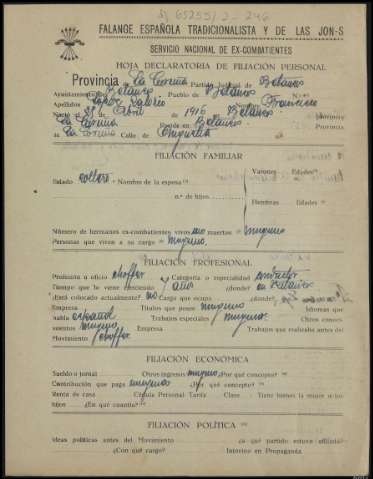 65255/2-246
FALANGE ESPAÑOLA TRADICIONALISTA Y DE LAS JON-S
SERVICIO NACIONAL DE EX-COMBATIENTES
HOJA DECLARATORIA DE FILIACIÓN PERSONAL
Provincia La Coruña Partido Judicial de Betanzos
Ayuntamiento Betanzos Pueblo de Betanzos N.º
Apellidos López Valerio Francisco
Nació el de Abril de 1916 Betanzos
La Coruña Reside en Betanzos Provincia
La Coruña Calle de
FILIACIÓN FAMILIAR
Estado soltero Nombre de la esposa Varones Edades
n.º de hijos
Hembras Edades
Número de hermanos ex-combatientes vivos uno muertos ninguno
Personas que viven a su cargo ninguno
FILIACIÓN PROFESIONAL
Profesión u oficio choffer Categoría o especialidad conductor
Tiempo que lo viene ejerciendo 7 años ¿dónde? en Betanzos
¿Está colocado actualmente? no Cargo que ocupa ¿dónde?
Empresa Títulos que posee ninguno Idiomas que
habla español Trabajos especiales ninguno Otros conoci-
mientos ninguno Empresa Trabajos que realizaba antes del
Movimiento choffer
FILIACIÓN ECONÓMICA
Sueldo o jornal Otros ingresos ninguno ¿Por qué concepto?
Contribución que paga ninguna ¿Por qué concepto?
Renta de casa Cédula Personal Tarifa Clase Tiene bienes la mujer o los
hijos ¿En qué cuantía?
FILIACIÓN POLÍTICA
Ideas políticas antes del Movimiento ¿a qué partido estuvo afiliado?
¿Con qué cargo? Intervino en Propaganda